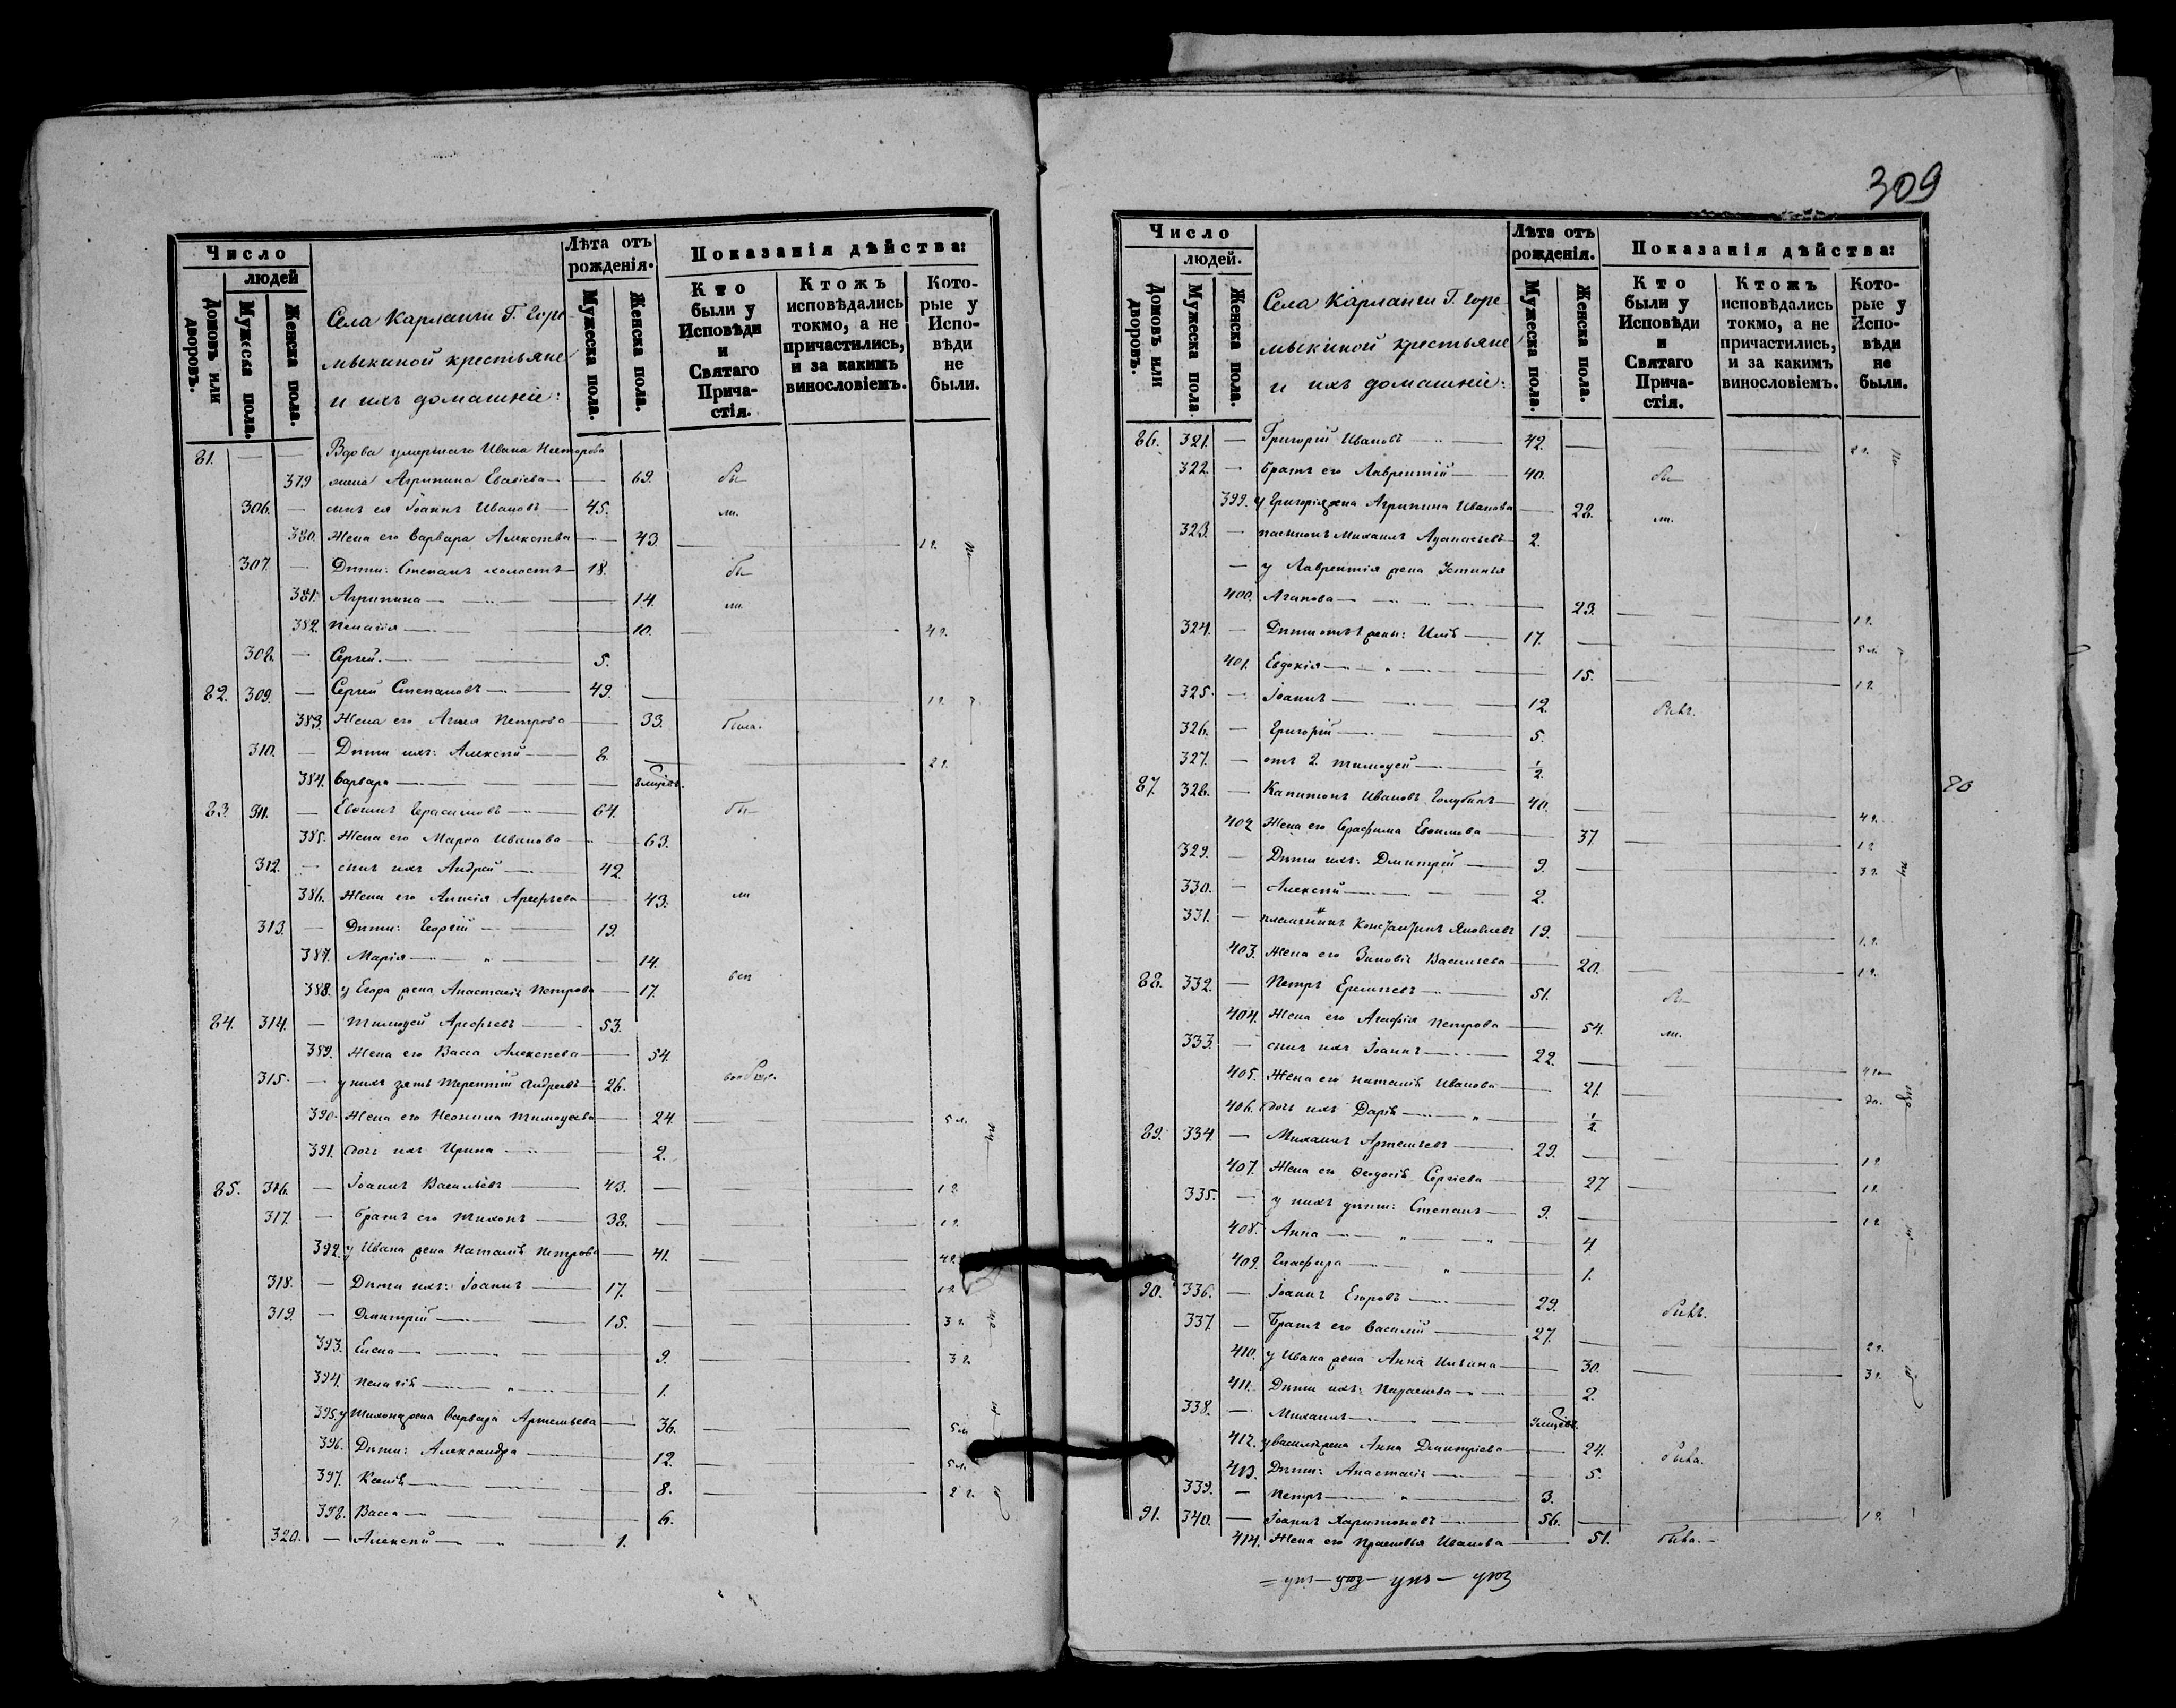 309
Число
людей
Домовъ или дворовъ.
Мужеска пола.
Женска пола.
Села Карланги Г. Горе-
мыкиной крестьяне
и ихъ домашніе:
Лѣта отъ
рожденія.
Мужеска пола.
Женска пола.
Показанія дѣйства:
Кто
были у
Исповѣди
и
Святаго
Прича-
стія.
Ктожъ
исповѣдались
токмо, а не
причастились,
и за какимъ
винословіемъ.
Кото-
рые у
Испо-
вѣди
не
были.
81. — — Вдова умершаго Ивана Несторова
379 жена Агрипина — 69. бы
306. — сынъ ея Іоаннъ Ивановъ — 45. ли.
380. Жена его Варвара Алексѣева — 43. 1 г.
307. — Дѣти: Степанъ холостъ — 18. бы
381. Агрипина — 14. ли
382. Пелагія — 10. 4 г.
308. — Сергей. — 5.
82. 309. — Сергей Степановъ — 49. 1 г.
383. Жена его Петрова — 33. была.
310. — Дѣти ихъ: Алексѣй — 8. 2 г.
384. Варвара —
83. 311. — Герасимовъ — 64. бы
385. Жена его Марѳа Иванова — 63.
312. — сынъ ихъ Андрей — 42.
386. Жена его Арефьева — 43. ли
313. — Дѣти: Георгій — 19.
387. Марія — 14.
388. у Егора жена Анастасія Петрова — 17. всѣ
84. 314. — Тимоѳей Арефьевъ — 53.
389. Жена его Васса Алексѣева — 54.
315. — у нихъ зять Терентій Андреевъ — 26.
390. Жена его Неонила Тимоѳеева — 24. 5 л.
391. дочь ихъ Ирина — 2.
85. 316. — Іоаннъ Васильевъ — 43. 1 г.
317. — братъ его Тихонъ — 38. 1 г.
392. у Ивана жена Наталія Петрова — 41. 4 г.
318. — Дѣти ихъ: Іоаннъ — 17. 1 г.
319. — Дмитрій — 15. 3 г.
393. Елена — 9. 3 г.
394. Пелагія — 1.
395. у Тихона жена Варвара Артемьева — 36. 5 л.
396. Дѣти: Александра — 12. 5 л.
397. Ксенія — 8. 2 г.
398. Васса — 6.
320. — Алексѣй — 1.
Число
людей.
Домовъ или дворовъ.
Мужеска пола.
Женска пола.
Села Карланги Г. Горе-
мыкиной крестьяне
и ихъ домашніе:
Лѣта отъ
рожденія.
Мужеска пола.
Женска пола.
Показанія дѣйства:
Кто
были у
Исповѣди
и
Святаго
Прича-
стія.
Ктожъ
исповѣдались
токмо, а не
причастились,
и за какимъ
винословіемъ.
Кото-
рые у
Испо-
вѣди
не
были.
86. 321. — Григорій Ивановъ — 42. 2 г.
322. — братъ его Лаврентій — 40. бы
399. у Григорія жена Агрипина Иванова — 28. ли.
323. — пасынокъ Михаилъ — 2.
— у Лаврентія жена Устинья
400. Агапова — 23. 1 г.
324. — Дѣти отъ 1 жены: Илія — 17. 5 л.
401. Евдокія — 15. 1 г.
325. — Іоаннъ — 12. былъ.
326. — Григорій — 5.
327. — отъ 2. Тимоѳей — 1/2.
87. 328. — Капитонъ Ивановъ Голубинъ — 40. 4 г.
402 Жена его Серафима — 37. 1 г.
329. — Дѣти ихъ: Дмитрій — 9. 3 г.
330. — Алексѣй — 2.
331. — племянникъ Константинъ Яковлевъ 19. 1 г.
403. Жена его Зиновія Васильева — 20. 1 г.
88. 332. — Петръ — 51. бы
404. Жена его Агафія Петрова — 54. ли.
333. — сынъ ихъ Іоаннъ — 22.
405. Жена его Наталія Иванова — 21.
406. дочь ихъ Дарія — 1/2.
89. 334. — Михаилъ Артемьевъ — 29. 1 г.
407. Жена его Ѳеодосія Сергіева — 27. 1 г.
335. — у нихъ дѣти: Степанъ — 9. 1 г.
408. Анна — 4.
409. Глафира — 1.
90. 336. — Іоаннъ Егоровъ — 29. былъ.
337. — Братъ его Василій — 27. 2 г.
410. у Ивана жена Анна Ильина — 30. 3 г.
411. Дѣти ихъ: — 2.
338. — Михаилъ —
412. у Василія жена Анна Дмитріева — 24. была.
413. Дѣти: Анастасія — 5.
339. — Петръ — 3.
91. 340. — Іоаннъ Харитоновъ — 56. 1 г.
414. Жена его Прасковья Иванова — 51. была. —